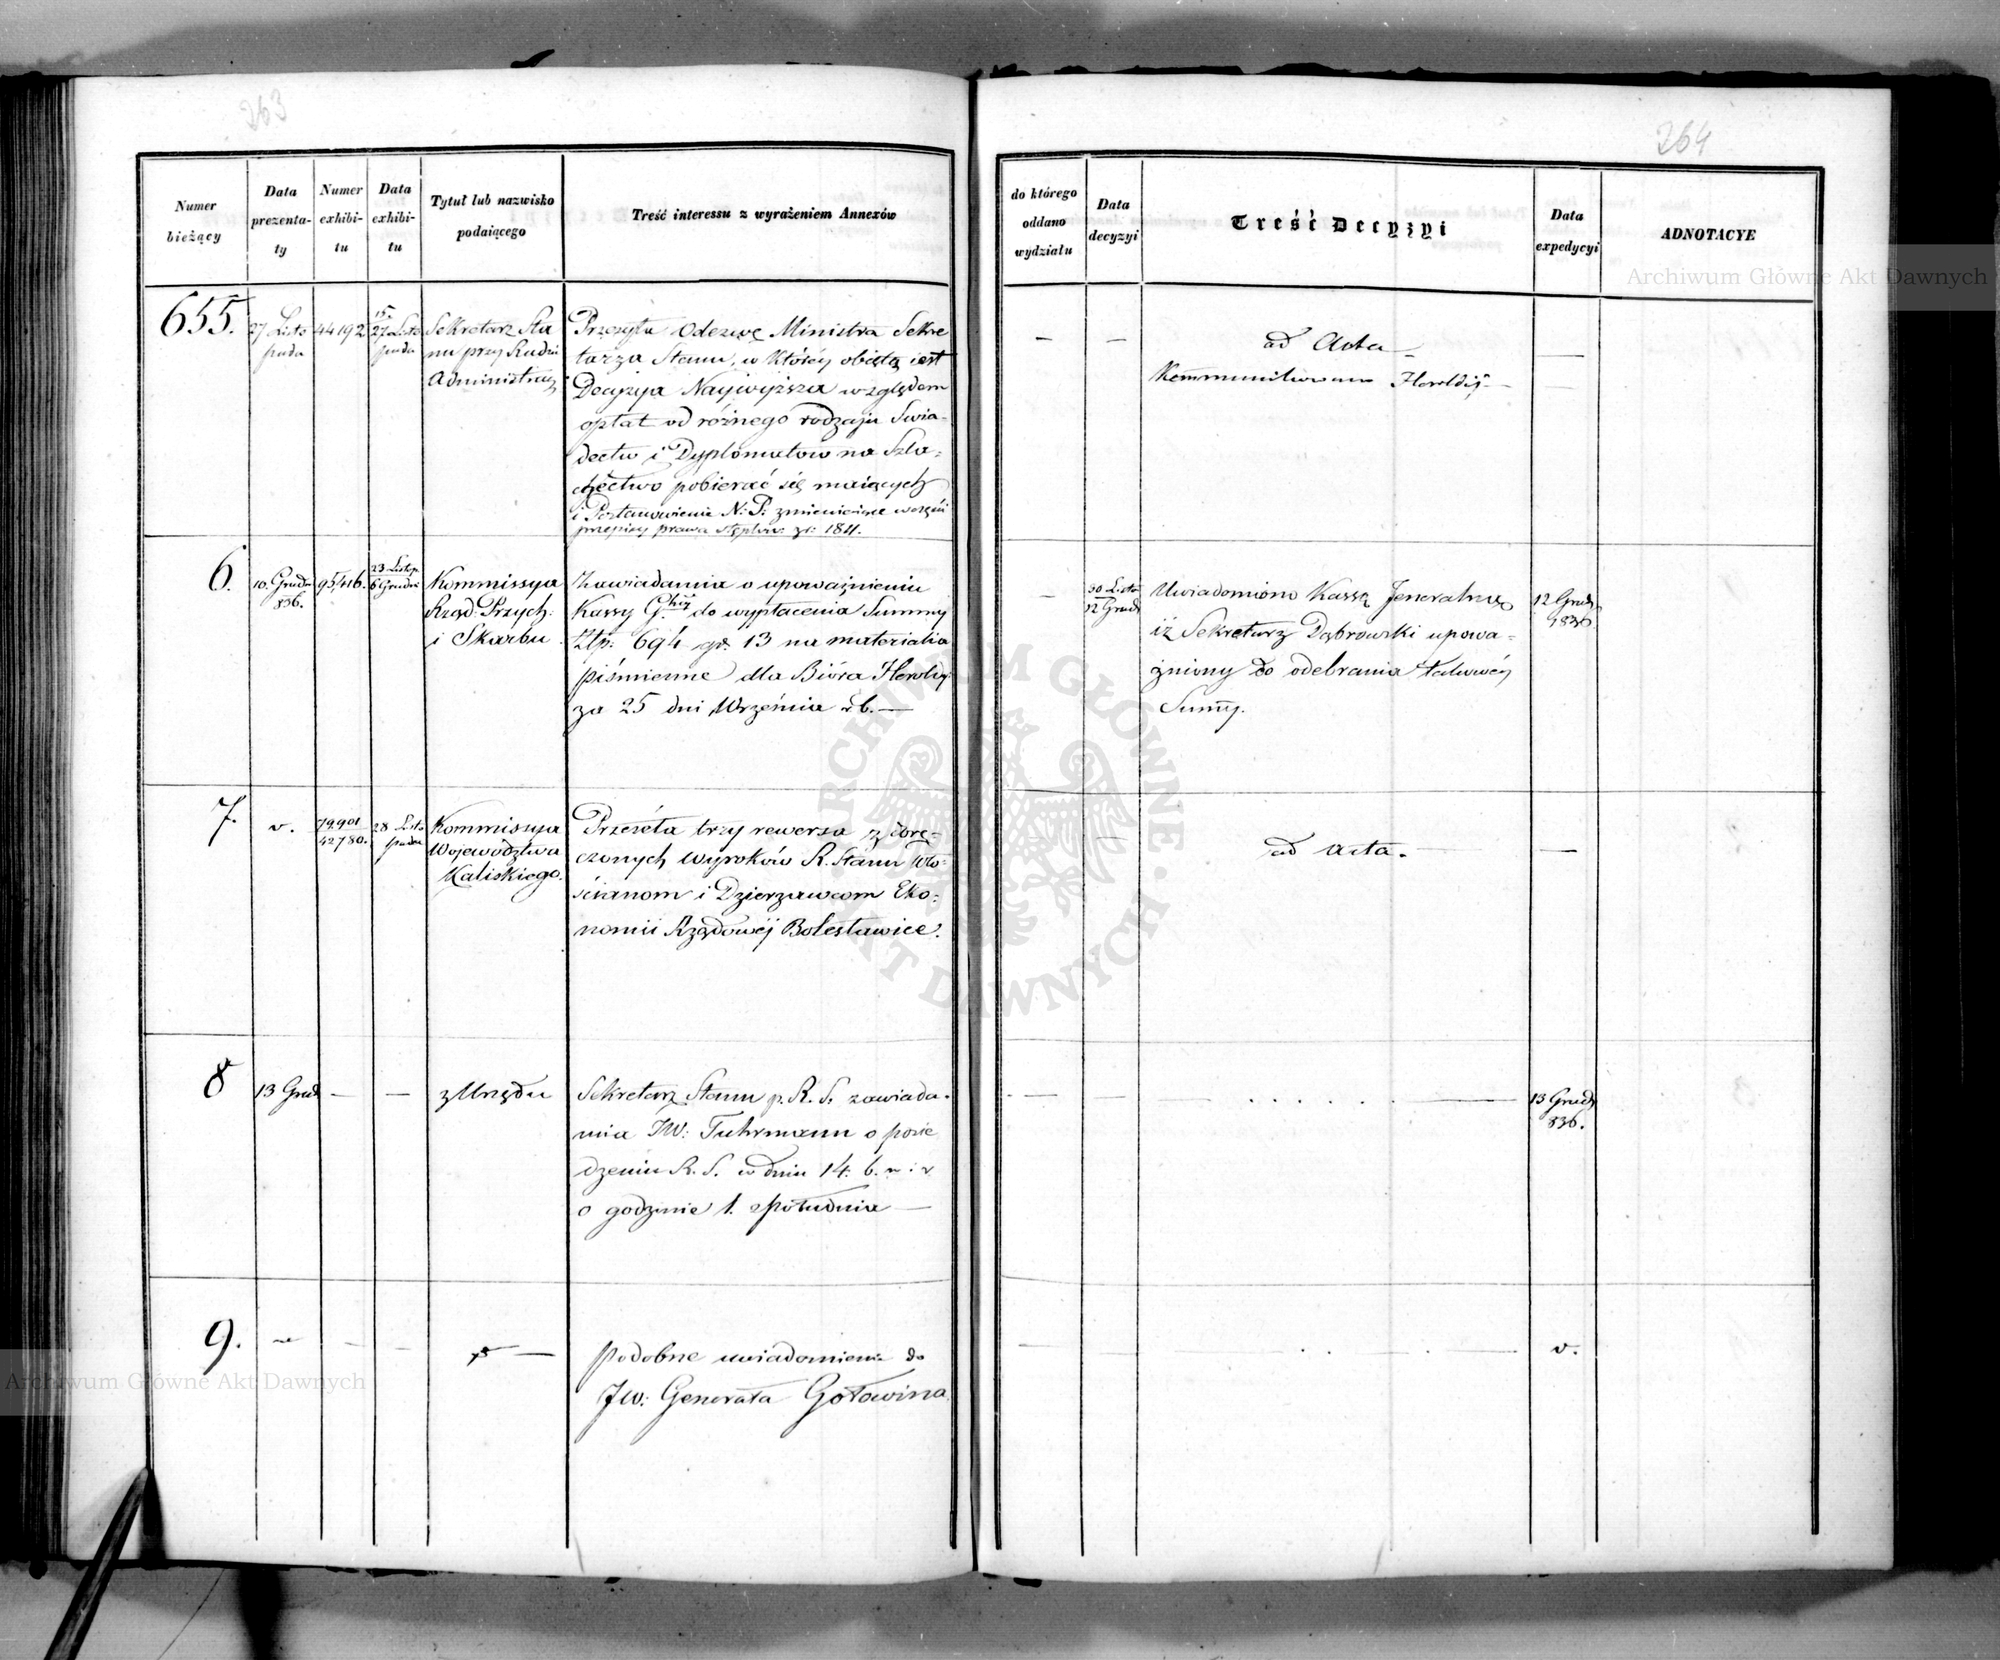 263
264
Numer bieżący
Data prezentaty
Numer exhibitu
Data exhibitu
Tytuł lub nazwisko podaiącego
Treść interessu z wyrażeniem Annexów
do którego oddano wydziału
Data decyzyi
Treść Decyzyi
Data expedycyi
ADNOTACYE
655.
27 Listo
pada
44192
15.
27 Listo
pada
Sekretarz Sta
nu przy Radzie
Administracy
Przesyła Odezwę Ministra Sekre
tarza Stanu, w któréy obiętą iest
Decyzya Naywyższa względem
opłat od różnego rodzaju Swia-
dectw i Dyplomatow na Szla-
chectwo pobierać się maiących
i Postanowienie N: P: zmieniaiące
przepisy prawa stęplów: z r: 1811.
ad Acta
Kommunikowano Heroldyi
6.
10. Grudn
836.
95,416.
23 Listop
6 Grudnia
Kommissya
Rząd: Przych:
i Skarbu
Zawiadamia o upoważnieniu
Kassy Głnéy do wypłacenia Summy
Złp: 694 gr. 13 na materialia
piśmienne dla Bióra Heroldyi
za 25 dni Września r. b.
30 Listo
12 Grud
Uwiadomiono Kassę Jeneralną
iż Sekretarz Dąbrowski upowa-
żniony do odebrania takowéy
Summy.
12 Grud
1836.
7.
v.
79,901
42780.
28 Listo
pada
Kommissya
Województwa
Kaliskiego.
Przeséła trzy rewersa z dorę-
czonych wyroków R. Stanu Wło-
ścianom i Dzierzawcom Eko-
nomii Rządowéj Bolesławice.
ad Acta.
8
13 Grud
z Urzędu
Sekretarz Stanu p. R. S. zawiada-
mia JW: Fuhrmann o posie
dzeniu R. S. w dniu 14. b. m. i r
o godzinie 1. z Południa
13 Grud
836.
9.
Podobne uwiadomienie do
JW: Generała Gołowina
v.
Archiwum Główne Akt Dawnych
Archiwum Główne Akt Dawnych
ARCHIWUM GŁÓWNE AKT DAWNYCH